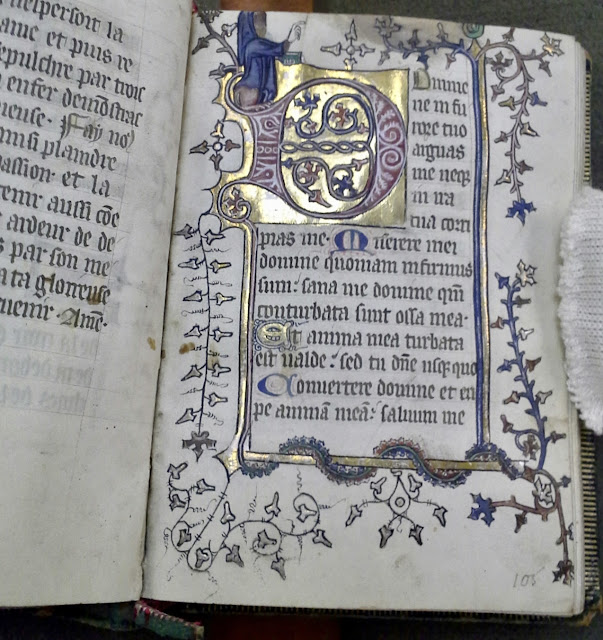 la
ame et puis re
sepulchre par
enfer
plaindre
passion et la
enir aussi cōe
ardeur de de
s par son me
ta glorieuse
uenir. Amē.
Domine
ne in fu
rore tuo
arguas
me neqꝫ
in ira
tua corri
pias me. Miserere mei
domine quoniam infirmus
sum: sana me domine qm̄
conturbata sunt ossa mea.
Et anima mea turbata
est ualde: sed tu dn̄e usqꝫ quo
Conuertere domine et eri
pe animā meā: saluum me
105